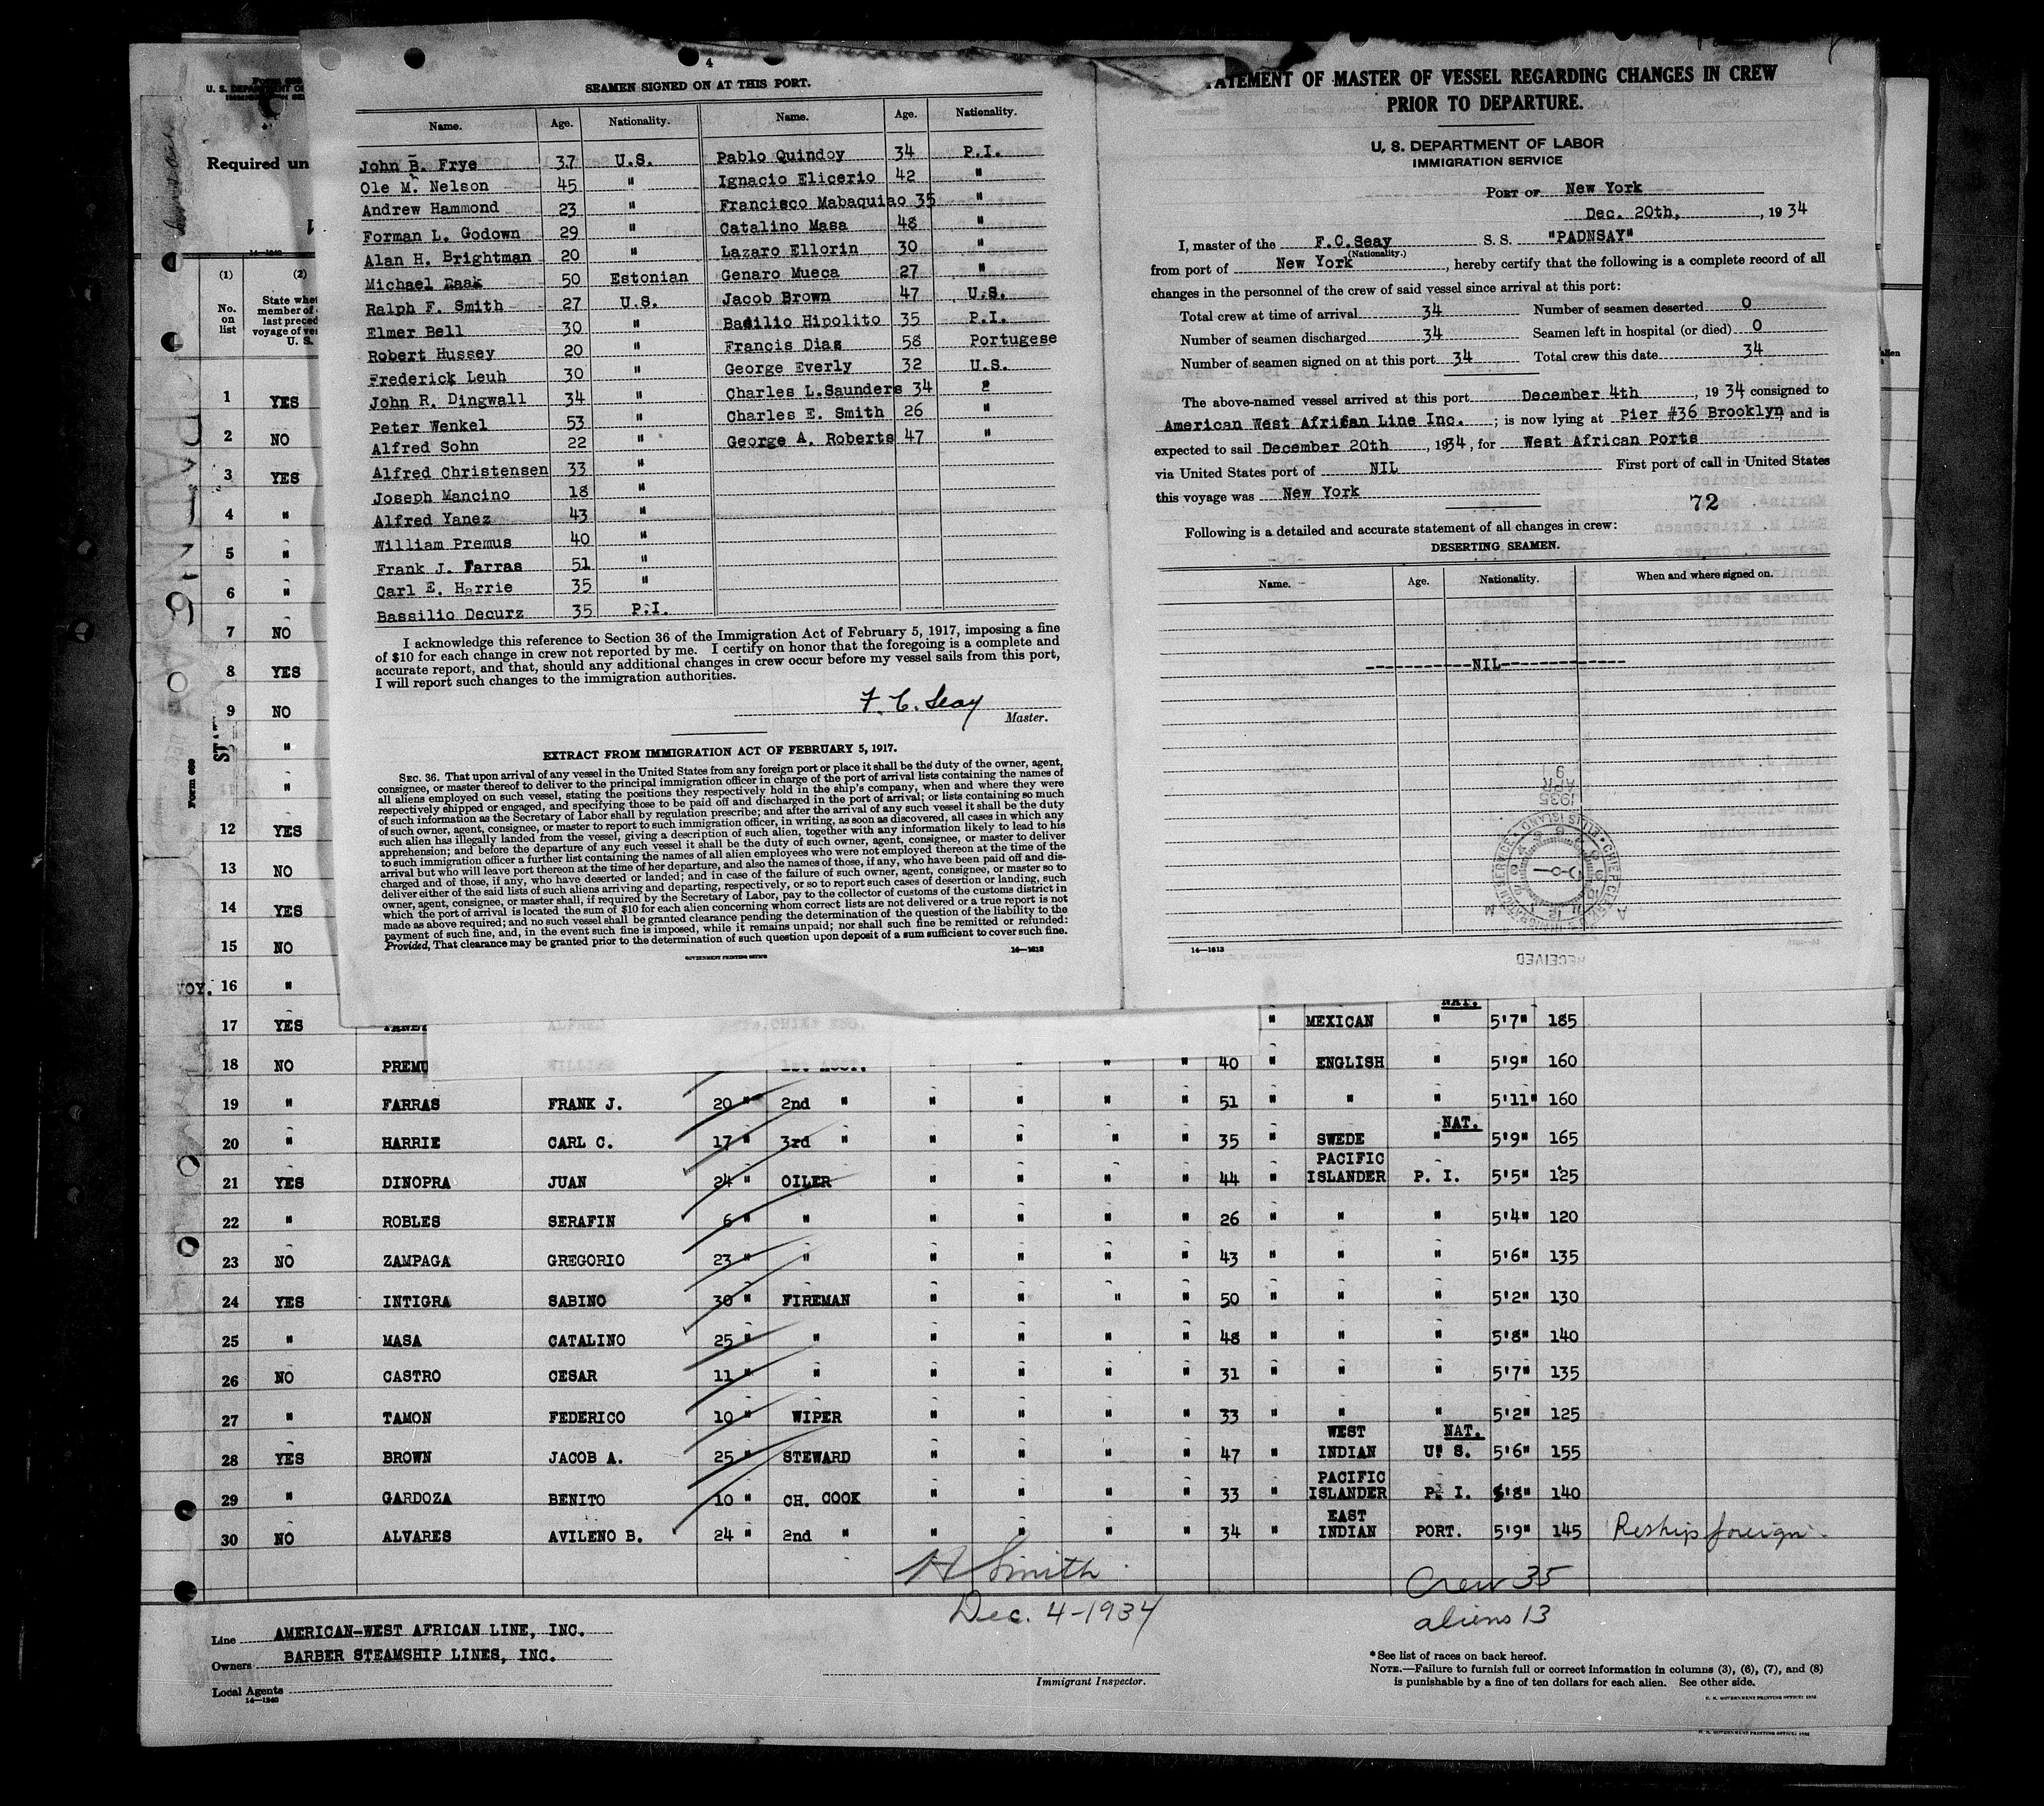 4
SEAMEN SIGNED ON AT THIS PORT.
Name. Age. Nationality. Name. Age. Nationality.
John B. Frye 37 U.S. Pablo Quindoy 34 P.I.
Ole M. Nelson 45 " Ignacio Elicerio 42 "
Andrew Hammond 23 " Francisco Mabaquiao 35 "
Forman L. Godown 29 " Catalino Masa 48 "
Alan H. Brightman 20 " Lazaro Ellorin 30 "
Michael Raak 50 Estonian Genaro Mueca 27 "
Ralph F. Smith 27 U.S. Jacob Brown 47 U.S.
Elmer Bell 30 " Basilio Hipolito 35 P.I.
Robert Hussey 20 " Francis Dias 58 Portugese
Frederick Leuh 30 " George Everly 32 U.S.
John R. Dingwall 34 " Charles L.Saunders 34 "
Peter Wenkel 53 " Charles E. Smith 26 "
Alfred Sohn 22 " George A. Roberts 47 "
Alfred Christensen 33 "
Joseph Mancino 18 "
Alfred Yanez 43 "
William Premus 40 "
Frank J. Farras 51 "
Carl E. Harrie 35 "
Bassilio Decurz 35 P.I.
I acknowledge this reference to Section 36 of the Immigration Act of February 5, 1917, imposing a fine
of $10 for each change in crew not reported by me. I certify on honor that the foregoing is a complete and
accurate report, and that, should any additional changes in crew occur before my vessel sails from this port,
I will report such changes to the immigration authorities.
F. C. Seay
Master.
EXTRACT FROM IMMIGRATION ACT OF FEBRUARY 5, 1917.
SEC. 36. That upon arrival of any vessel in the United States from any foreign port or place it shall be the duty of the owner, agent,
consignee, or master thereof to deliver to the principal immigration officer in charge of the port of arrival lists containing the names of
all aliens employed on such vessel, stating the positions they respectively hold in the ship's company, when and where they were
respectively shipped or engaged, and specifying those to be paid off and discharged in the port of arrival; or lists containing so much
of such information as the Secretary of Labor shall by regulation prescribe; and after the arrival of any such vessel it shall be the duty
of such owner, agent, consignee, or master to report to such immigration officer, in writing, as soon as discovered, all cases in which any
such alien has illegally landed from the vessel, giving a description of such alien, together with any information likely to lead to his
apprehension; and before the departure of any such vessel it shall be the duty of such owner, agent, consignee, or master to deliver
to such immigration officer a further list containing the names of all alien employees who were not employed thereon at the time of the
arrival but who will leave port thereon at the time of her departure, and also the names of those, if any, who have been paid off and dis-
charged and of those, if any, who have deserted or landed; and in case of the failure of such owner, agent, consignee, or master so to
deliver either of the said lists of such aliens arriving and departing, respectively, or so to report such cases of desertion or landing, such
owner, agent, consignee, or master shall, if required by the Secretary of Labor, pay to the collector of customs of the customs district in
which the port of arrival is located the sum of $10 for each alien concerning whom correct lists are not delivered or a true report is not
made as above required; and no such vessel shall be granted clearance pending the determination of the question of the liability to the
payment of such fine, and, in the event such fine is imposed, while it remains unpaid; nor shall such fine be remitted or refunded:
Provided, That clearance may be granted prior to the determination of such question upon deposit of a sum sufficient to cover such fine.
GOVERNMENT PRINTING OFFICE 14—1613
STATEMENT OF MASTER OF VESSEL REGARDING CHANGES IN CREW
PRIOR TO DEPARTURE.
U. S. DEPARTMENT OF LABOR
IMMIGRATION SERVICE
PORT OF New York
Dec. 20th, , 1934
I, master of the F.C.Seay S. S. "PADNSAY"
(Nationality.)
from port of New York , hereby certify that the following is a complete record of all
changes in the personnel of the crew of said vessel since arrival at this port:
Total crew at time of arrival 34 Number of seamen deserted 0
Number of seamen discharged 34 Seamen left in hospital (or died) 0
Number of seamen signed on at this port 34 Total crew this date 34
The above-named vessel arrived at this port December 4th , 1934 consigned to
American West African Line Inc. ; is now lying at Pier #36 Brooklyn and is
expected to sail December 20th , 1934, for West African Ports
via United States port of NIL First port of call in United States
this voyage was New York
72
Following is a detailed and accurate statement of all changes in crew:
DESERTING SEAMEN.
Name. Age. Nationality. When and where signed on.
-----------NIL-------------
1935 APR 9
RECEIVED
14—1613
Form 689
U. S. DEPARTMENT OF
Required un
(1) (2)
No. on list
State whet
member of
last preced
voyage of ves
U. S.
1 YES
2 NO
3 YES
4 "
5 "
6 "
7 NO
8 YES
9 NO
"
"
12 YES
13 NO
14 YES
15 NO
VOY. 16 "
NAT.
17 YES YANEZ ALFRED " MEXICAN " 5'7" 185
18 NO PREMU WILLIAM 1st ASST. " " " " 40 " ENGLISH " 5'9" 160
19 " FARRAS FRANK J. 20 " 2nd " " " " " 51 " " " 5'11" 160
NAT.
20 " HARRIE CARL C. 17 " 3rd " " " " " 35 " SWEDE " 5'9" 165
PACIFIC
21 YES DINOPRA JUAN 24 " OILER " " " " 44 " ISLANDER P. I. 5'5" 125
22 " ROBLES SERAFIN 6 " " " " " " 26 " " " 5'4" 120
23 NO ZAMPAGA GREGORIO 23 " " " " " " 43 " " " 5'6" 135
24 YES INTIGRA SABINO 30 " FIREMAN " " " " 50 " " " 5'2" 130
25 " MASA CATALINO 25 " " " " " " 48 " " " 5'8" 140
26 NO CASTRO CESAR 11 " " " " " " 31 " " " 5'7" 135
27 " TAMON FEDERICO 10 " WIPER " " " " 33 " " " 5'2" 125
WEST NAT.
28 YES BROWN JACOB A. 25 " STEWARD " " " " 47 " INDIAN U. S. 5'6" 155
PACIFIC
29 " GARDOZA BENITO 10 " CH. COOK " " " " 33 " ISLANDER P. I. 5'8" 140
EAST
30 NO ALVARES AVILENO B. 24 " 2nd " " " " " 34 " INDIAN PORT. 5'9" 145 Reship foreign.
H Smith
Dec. 4-1934
Crew 35
aliens 13
Line AMERICAN-WEST AFRICAN LINE, INC.
Owners BARBER STEAMSHIP LINES, INC.
Local Agents
14—1240
Immigrant Inspector.
*See list of races on back hereof.
NOTE.—Failure to furnish full or correct information in columns (3), (6), (7), and (8)
is punishable by a fine of ten dollars for each alien. See other side.
U. S. GOVERNMENT PRINTING OFFICE: 1932
U. S. GOVERNMENT PRINTING OFFICE: 1932
Form 689